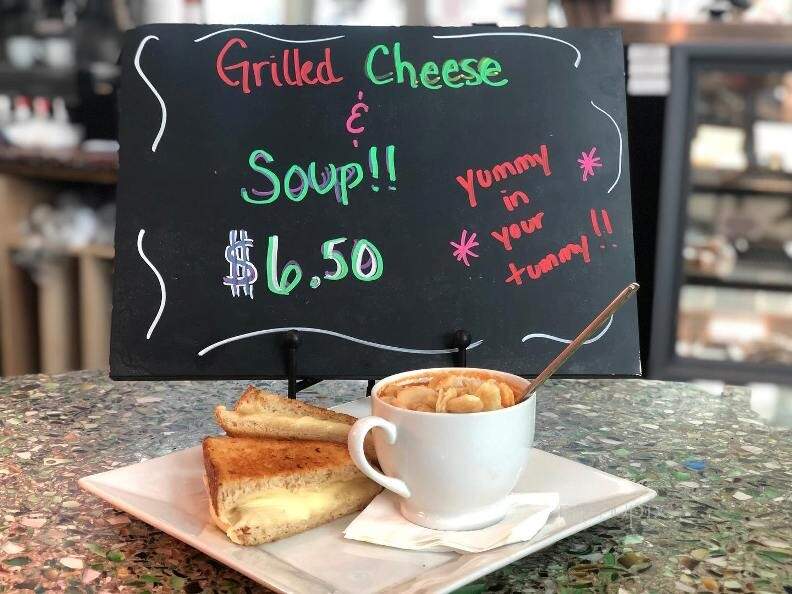 Grilled Cheese
&
Soup!!
$6.50
* Yummy
in
* your
tummy!!